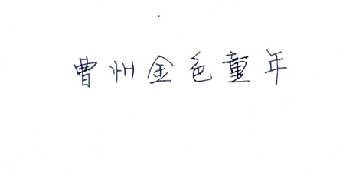 曹州金色童年